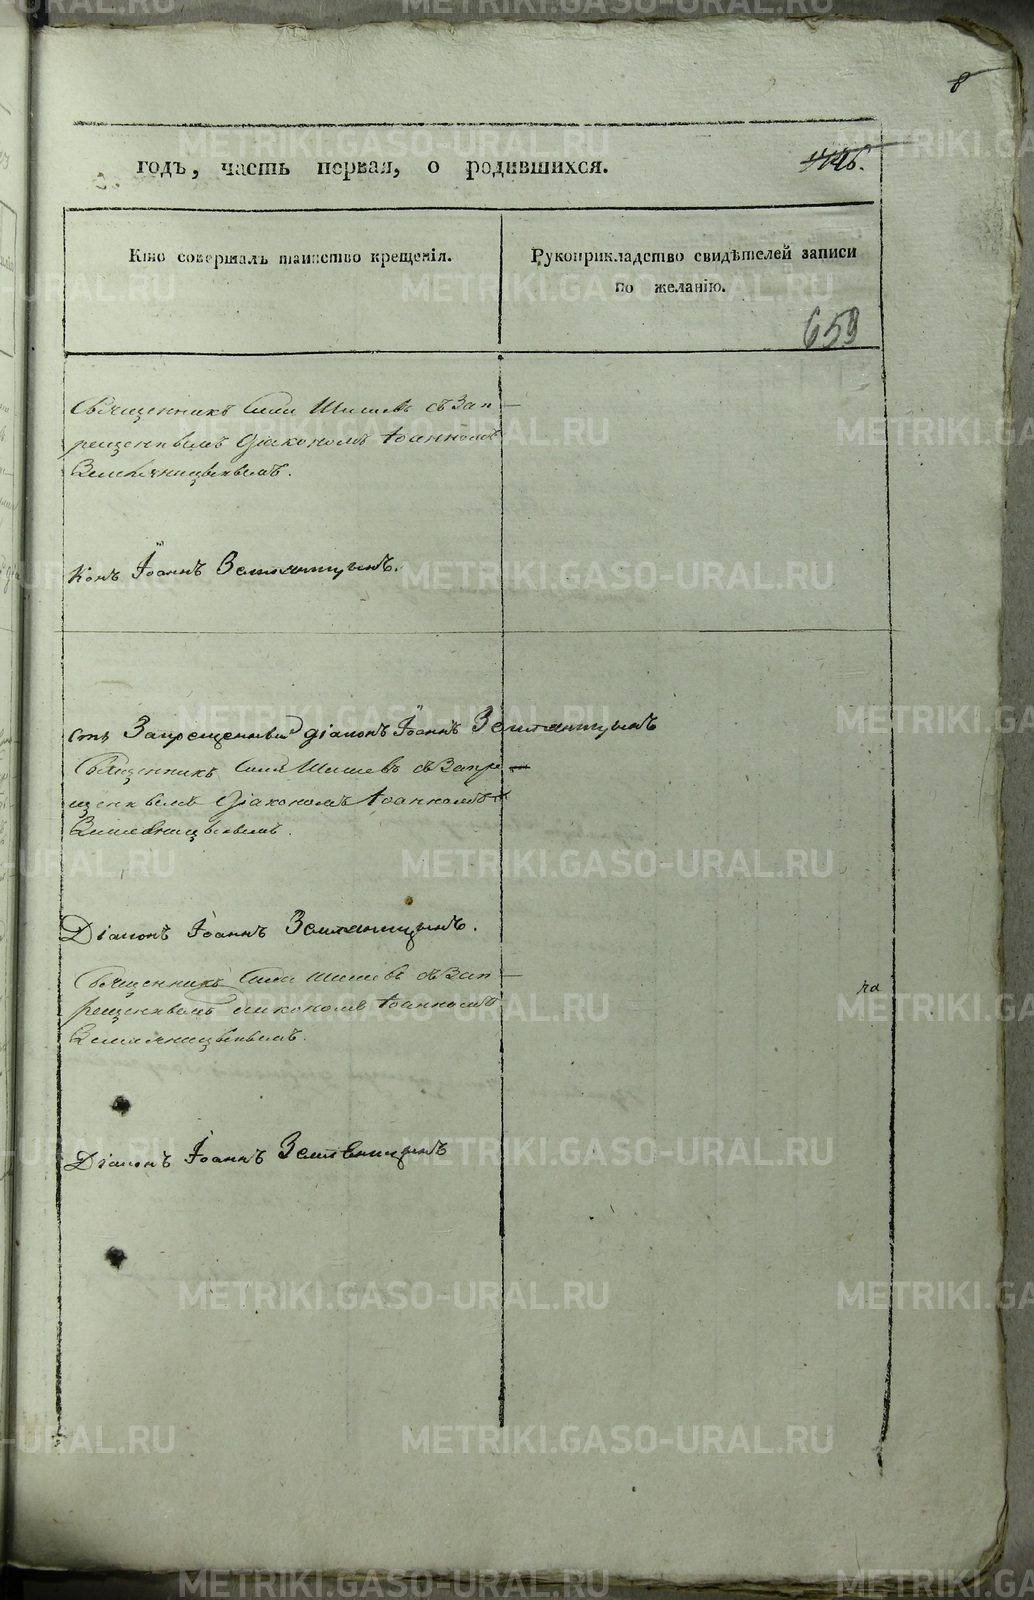 8
годъ, часть первая, о родившихся.
1116.
Кто совершалъ таинство крещенія.
Рукоприкладство свидѣтелей записи
по желанію.
659
Священникъ Сила Шишевъ съ Зап-
рещеннымъ Діакономъ Іоанномъ
Земляницынымъ.
конъ Іоаннъ Земляницынъ.
стъ Запрещенный діаконъ Іоаннъ Земляницынъ
Священникъ Сила Шишевъ съ Запре-
щеннымъ Діакономъ Іоанномъ
Земляницынымъ.
Діаконъ Іоаннъ Земляницынъ.
Священникъ Сила Шишевъ съ Зап-
рещеннымъ Діакономъ Іоанномъ
Земляницынымъ.
на
Діаконъ Іоаннъ Земляницынъ
METRIKI.GASO-URAL.RU